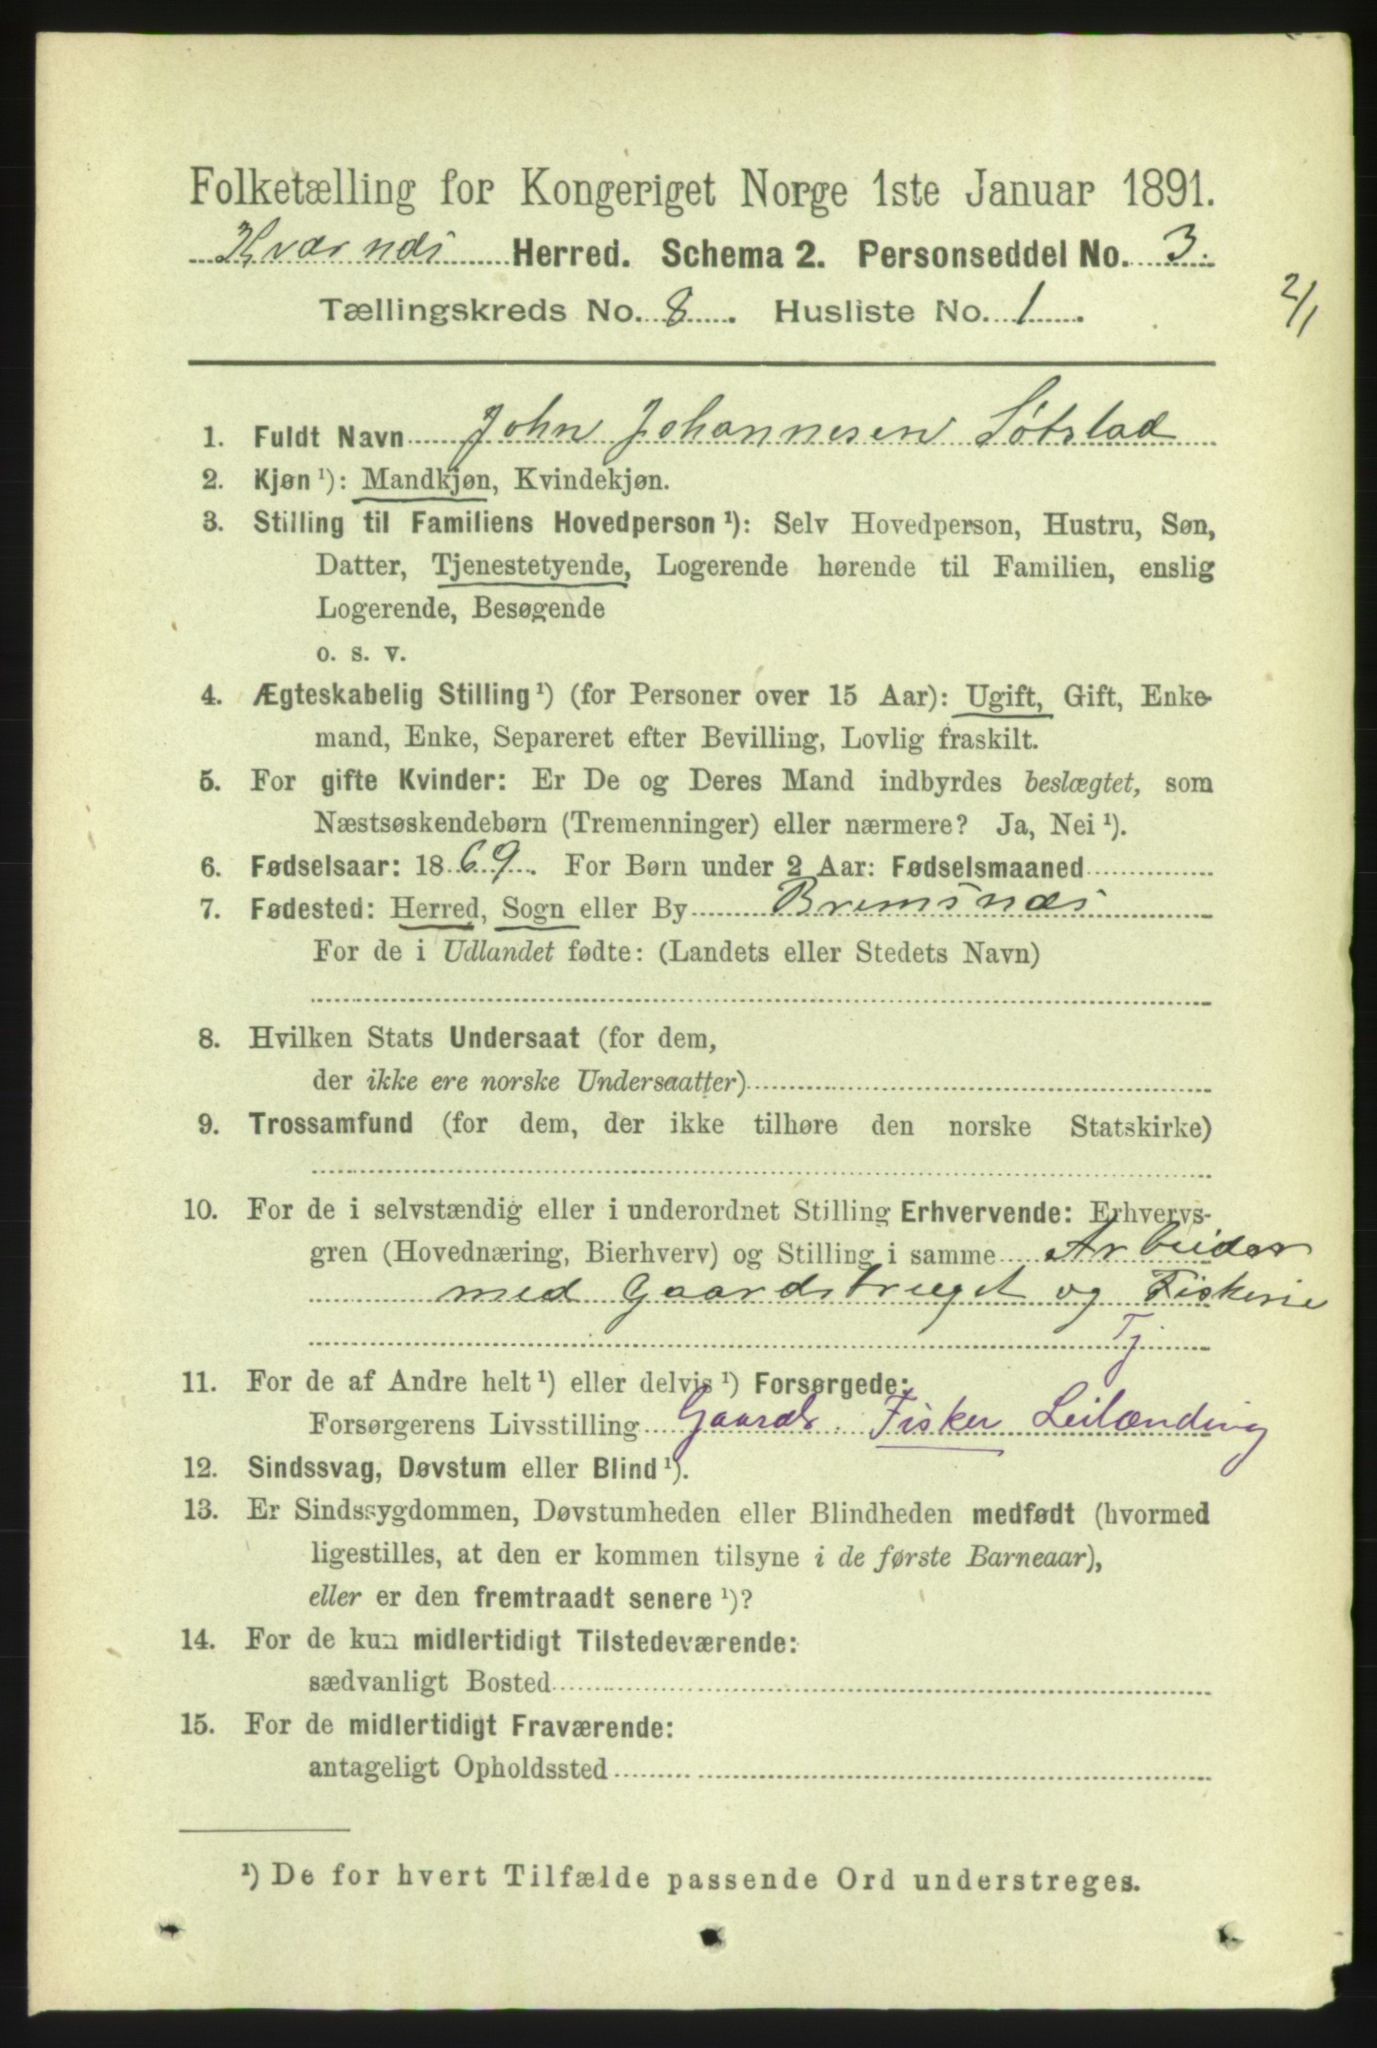 Folketælling for Kongeriget Norge 1ste Januar 1891.
Kværnæs Herred. Schema 2. Personseddel No. 3.
Tællingskreds No. 8. Husliste No. 1.
2/1
1. Fuldt Navn John Johannesen Søtstad
2. Kjøn ¹): Mandkjøn, Kvindekjøn.
3. Stilling til Familiens Hovedperson ¹): Selv Hovedperson, Hustru, Søn,
Datter, Tjenestetyende, Logerende hørende til Familien, enslig
Logerende, Besøgende
o. s. v.
4. Ægteskabelig Stilling ¹) (for Personer over 15 Aar): Ugift, Gift, Enke-
mand, Enke, Separeret efter Bevilling, Lovlig fraskilt.
5. For gifte Kvinder: Er De og Deres Mand indbyrdes beslægtet, som
Næstsøskendebørn (Tremenninger) eller nærmere? Ja, Nei ¹).
6. Fødselsaar: 1869. For Børn under 2 Aar: Fødselsmaaned
7. Fødested: Herred, Sogn eller By Bremsnæs
For de i Udlandet fødte: (Landets eller Stedets Navn)
8. Hvilken Stats Undersaat (for dem,
der ikke ere norske Undersaatter)
9. Trossamfund (for dem, der ikke tilhøre den norske Statskirke)
10. For de i selvstændig eller i underordnet Stilling Erhvervende: Erhvervs-
gren (Hovednæring, Bierhverv) og Stilling i samme Arbeider
med Gaardsbruget og Fiskerie
Tj
11. For de af Andre helt ¹) eller delvis ¹) Forsørgede:
Forsørgerens Livsstilling Gaardb. Fisker Leilænding
12. Sindssvag, Døvstum eller Blind ¹).
13. Er Sindssygdommen, Døvstumheden eller Blindheden medfødt (hvormed
ligestilles, at den er kommen tilsyne i de første Barneaar),
eller er den fremtraadt senere ¹)?
14. For de kun midlertidigt Tilstedeværende:
sædvanligt Bosted
15. For de midlertidigt Fraværende:
antageligt Opholdssted
¹) De for hvert Tilfælde passende Ord understreges.